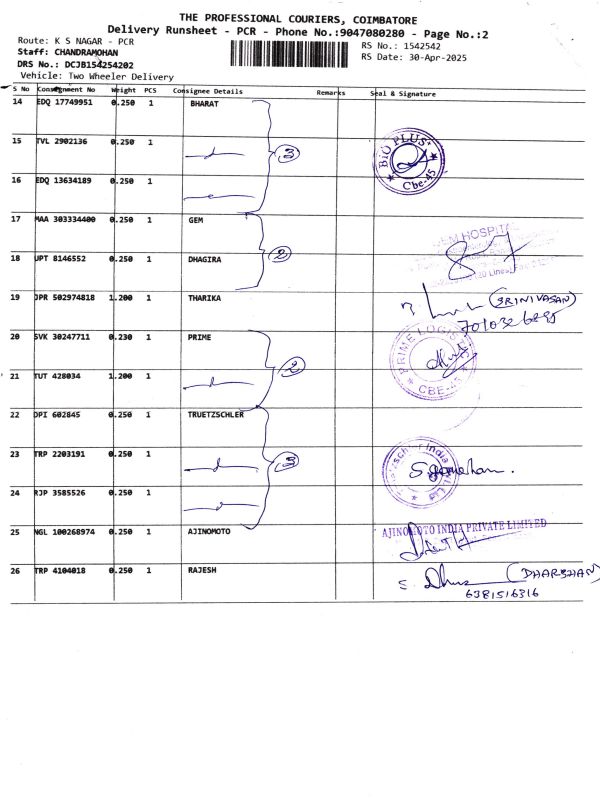 THE PROFESSIONAL COURIERS, COIMBATORE
Delivery Runsheet - PCR - Phone No.:9047080280 - Page No.:2
Route: K S NAGAR - PCR
RS No.: 1542542
Staff: CHANDRAMOHAN
RS Date: 30-Apr-2025
DRS No.: DCJB154254202
Vehicle: Two Wheeler Delivery
S No Consignment No Weight PCS Consignee Details Remarks Seal & Signature
14 EDQ 17749951 0.250 1 BHARAT
15 TVL 2902136 0.250 1
3
BIO PLUS
Cbe-45
16 EDQ 13634189 0.250 1
17 MAA 303334400 0.250 1 GEM
GEM HOSPITAL
18 UPT 8146552 0.250 1 DHAGIRA
2
19 JPR 502974818 1.200 1 THARIKA
(SRINIVASAN)
20 SVK 30247711 0.230 1 PRIME
PRIME LOGIS
CBE-45
21 TUT 428034 1.200 1
2
22 DPI 602845 0.250 1 TRUETZSCHLER
23 TRP 2203191 0.250 1
3
24 RJP 3585526 0.250 1
25 NGL 100268974 0.250 1 AJINOMOTO
AJINOMOTO INDIA PRIVATE LIMITED
26 TRP 4104018 0.250 1 RAJESH
(DHARSHAN)
6381516316